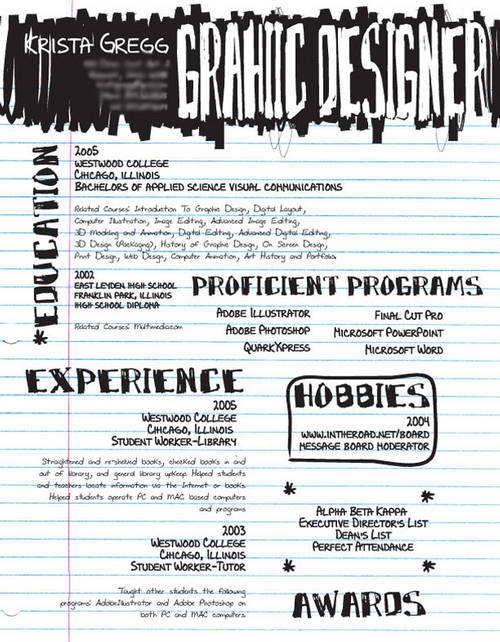 KRISTA GREGG
GRAHIIC DESIGNER
*EDUCATION
2005
WESTWOOD COLLEGE
CHICAGO, ILLINOIS
BACHELORS OF APPLIED SCIENCE VISUAL COMMUNICATIONS
Related Courses: Introduction To Graphic Design, Digital Layout,
Computer Illustration, Image Editing, Advanced Image Editing,
3D Modeling and Anmation, Digital Editing, Advanced Digital Editing,
3D Design (Packaging), History of Graphic Design, On Screen Design,
Print Design, Web Design, Computer Animation, Art History and Portfolio.
2002
EAST LEYDEN HIGH SCHOOL
FRANKLIN PARK, ILLINOIS
HIGH SCHOOL DIPLOMA
Related Courses: Multimedia.com
PROFICIENT PROGRAMS
ADOBE ILLUSTRATOR
ADOBE PHOTOSHOP
QUARKXPRESS
FINAL CUT PRO
MICROSOFT POWERPOINT
MICROSOFT WORD
EXPERIENCE
2005
WESTWOOD COLLEGE
CHICAGO, ILLINOIS
STUDENT WORKER-LIBRARY
Straightened and re-shelved books, checked books in and
out of library, and general library upkeep. Helped students
and teachers locate information via the Internet or books.
Helped students operate PC and MAC based computers
and programs
2003
WESTWOOD COLLEGE
CHICAGO, ILLINOIS
STUDENT WORKER-TUTOR
Taught other students the following
programs: AdobeIllustrator and Adobe Photoshop on
both PC and MAC computers
HOBBIES
2004
WWW.INTHEROAD.NET/BOARD
MESSAGE BOARD MODERATOR
ALPHA BETA KAPPA
EXECUTIVE DIRECTOR'S LIST
DEAN'S LIST
PERFECT ATTENDANCE
AWARDS